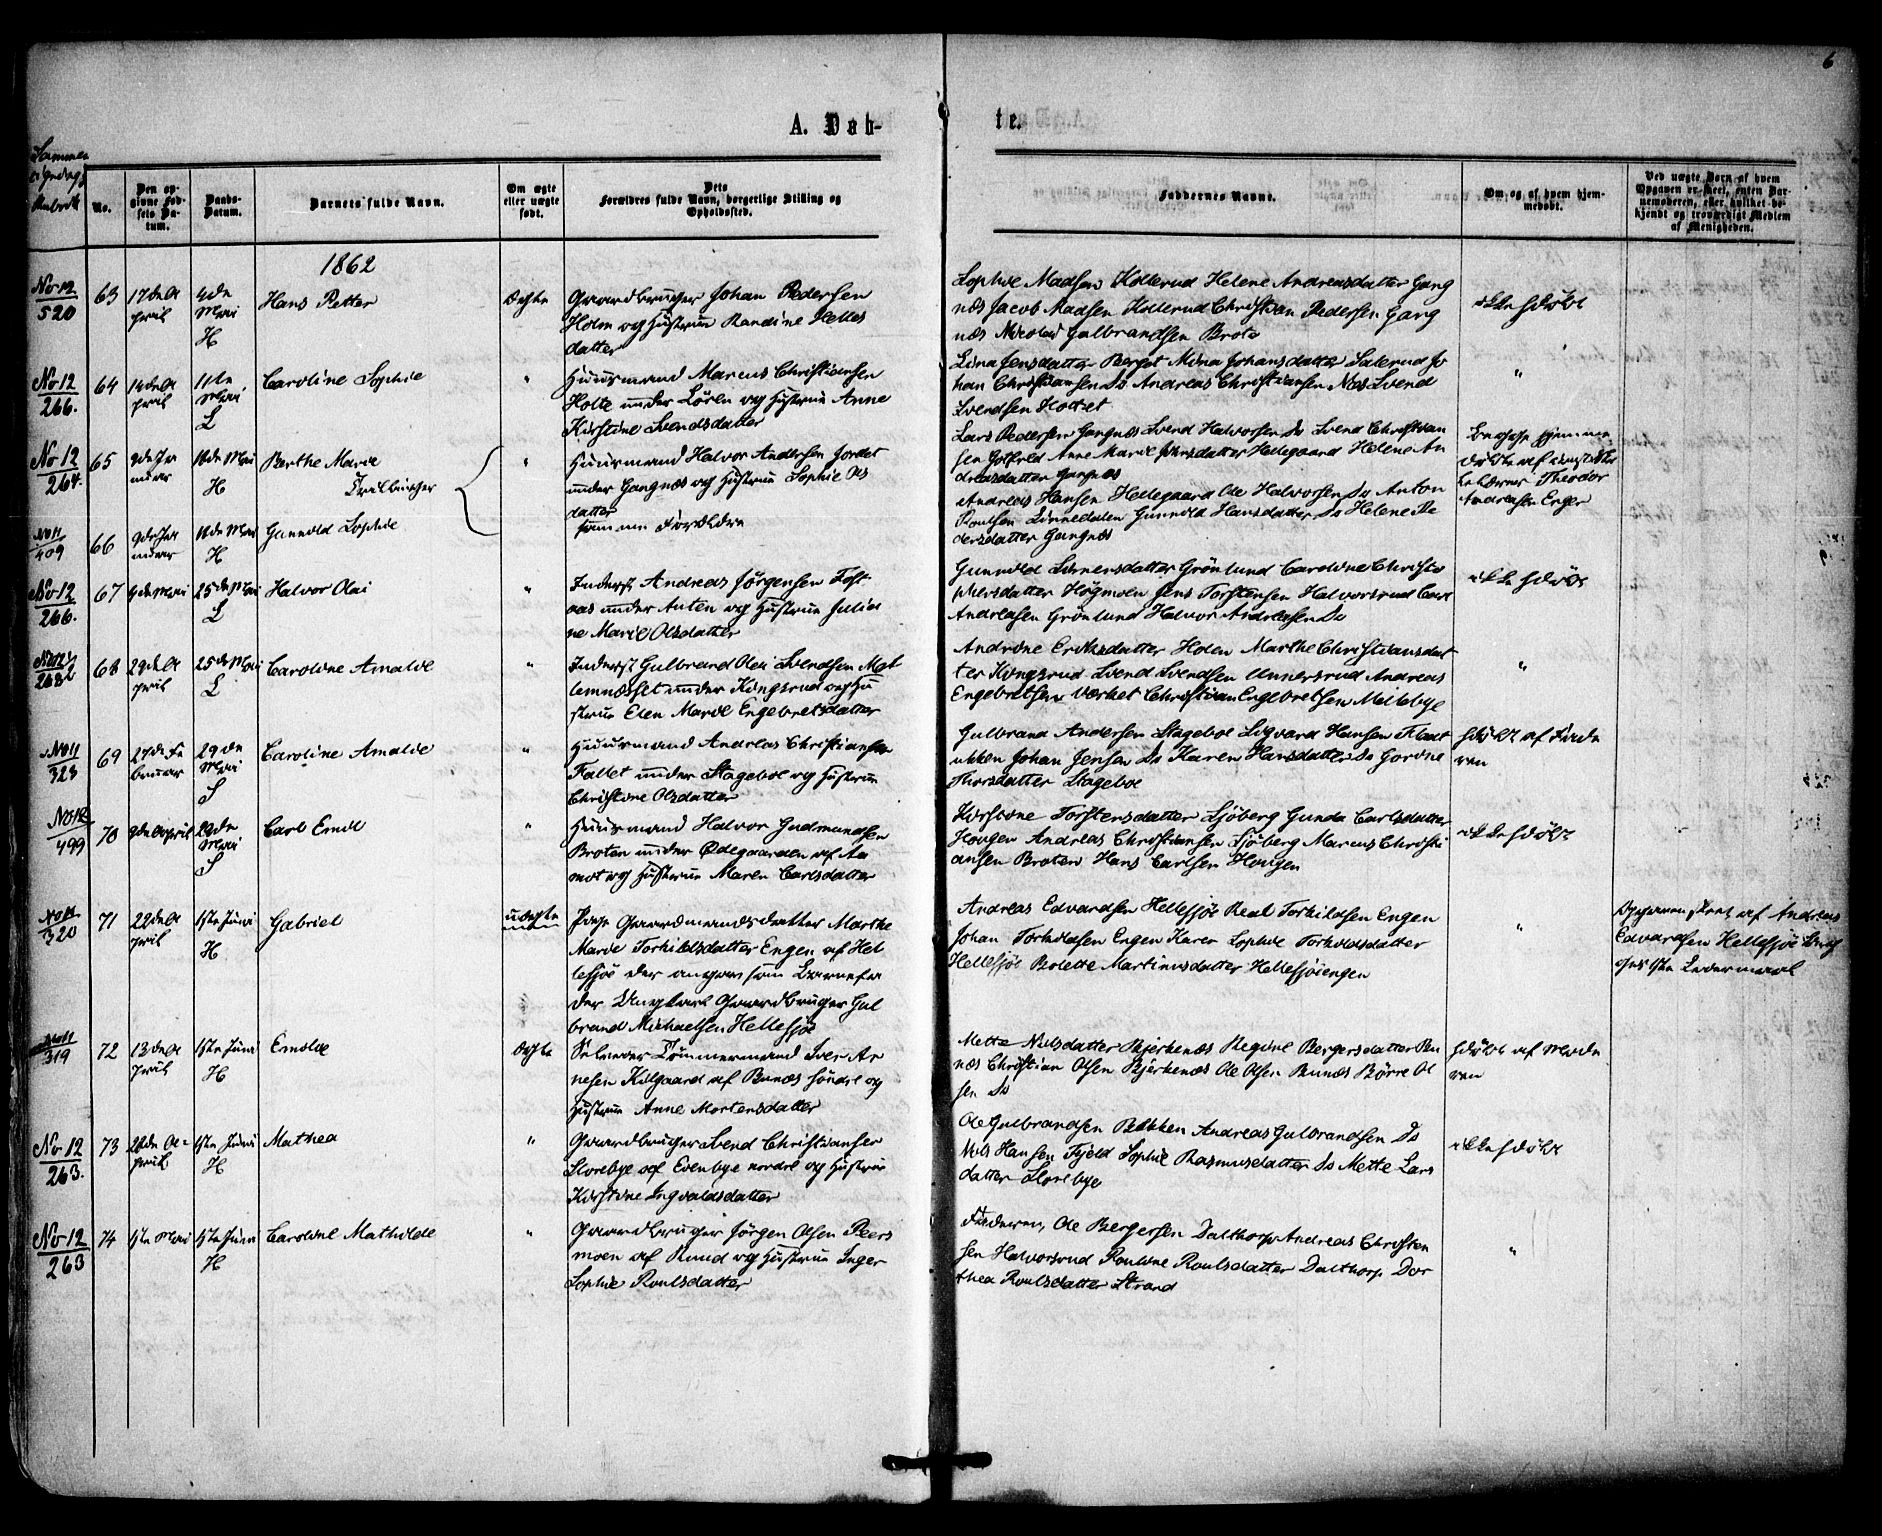 6
A. Døb-
te.
Sammen
No.
Den op-
givne Fød-
sels Da-
tum.
Daabs-
Datum.
Barnets fulde Navn.
Om ægte
eller uægte
født.
Dets
Forældres fulde Navn, borgerlige Stilling og
Opholdssted.
Faddernes Navne.
Om og af hvem hjem-
medøbt.
Ved uægte Børn af hvem
Opgaven er skeet, enten Bar-
nemoderen, eller hvilket be-
kjendt og troværdigt Medlem
af Menigheden.
1862
No 12
520
63
17de A
pril
4de
Mai
H
Hans Petter
Ægte
Gaardbruger Johan Pedersen
Holm og Hustrue Randine Helles
datter
Sophie Madsen Kollerud Helene Andreasdatter Gang
næs Jacob Madsen Kollerud Christian Pedersen Gang
næs Nicolai Gulbrandsen Brote
ikke hjdøbt
No 12
266.
64
14de A
pril
11te
Mai
L
Caroline Sophie
"
Huusmand Marcus Christiansen
Holte under Lören og Hustrue Anne
Kirstine Svendsdatter
Lina Jensdatter Berget Mina Johansdatter Salerud Jo
han Christiansen Do Andreas Christiansen Næs Svend
Svendsen Holtet
"
No 12
264
65
9de Ja
nuar
18de Mai
H
Berthe Marie
Tvillinger
"
Huusmand Halvor Andersen Jordet
under Gangnæs og Hustrue Sophie Ols
datter
Lars Pedersen Gangnæs Svend Halvorsen Do Svend Christian
sen Golfeld Anne Marie Larsdatter Hellegaard Helene An
dreasdatter Gangnæs
Begge hjemme
døbte af
Lærer Theodor
Andreasen Enger
No 11
409
66
9de Ja
nuar
18de Mai
H
Gunnild Sophie
samme Forældre
Andreas Hansen Hellegaard Ole Halvorsen Do Anton
Poulsen Linnedalen Gunnild Hansdatter Do Helene Pe
dersdatter Gangnæs
No 12
266.
67
4de Mai
25de Mai
L
Halvor Olai
"
Inderst Andreas Jörgensen Tost
aas under Auten og Hustrue Julia
ne Marie Olsdatter
Gunnild Sörensdatter Grönlund Caroline Christo
phersdatter Högmoen Jens Torstensen Halvorsrud Carl
Andreasen Grönlund Halvor Andreasen Do
ikke hjdøbt
No 12
262
68
29de A
pril
25de Mai
L
Caroline Amalie
"
Inderst Gulbrand Olai Svendsen Mel
lemnæsset under Kongsrud og Hu
strue Elen Marie Engebretsdatter
Andrine Eriksdatter Holen Marthe Christiansdat
ter Kongsrud Svend Svendsen Unnersrud Andreas
Engebretsen Værket Christian Engebretsen Mellebye
"
No 11
323
69
27de Fe
bruar
29de
Mai
S
Caroline Amalie
"
Huusmand Andreas Christiansen
Fallet under Stageboe og Hustrue
Christine Olsdatter
Gulbrand Andersen Stageboe Sigvard Hansen Flaat
bakken Johan Jensen Do Karen Hansdatter Do Gorine
Thorsdatter Stageboe
hjdøbt af Fade
ren
No 12
499
70
9de April
29de
Mai
S
Carl Emil
"
Huusmand Halvor Gudmundsen
Broten under Ødegaarden af Aa
mot og Hustrue Maren Carlsdatter
Kirstine Torstensdatter Sjöberg Gunda Carlsdatter
Hougen Andreas Christiansen Sjöberg Marcus Christi
ansen Broten Hans Carlsen Hougen
ikke hjdøbt
No 11
320
71
22de A
pril
1ste Juni
H
Gabriel
uægte
Pige Gaardmandsdatter Marthe
Marie Torkildsdatter Engen af Hel
lesjöe der angav som Barnefa
der Ungkarl Gaardbruger Gul
brand Michaelsen Hellesjöe
Andreas Edvardsen Hellesjöe Beat Torkildsen Engen
Johan Torkildsen Engen Karen Sophie Torkildsdatter
Hellesjöe Bolette Martinusdatter Hellesjöengen
"
Opgaven skeet af Andreas
Edvardsen Hellesjöe
1ste Leiermaal
No 11
319
72
13de A
pril
1ste Juni
H
Emilie
Ægte
Selveier Tömmermand Iver Ar
nesen Kilgaard af Bunæs söndre og
Hustrue Anne Mortensdatter
Mette Nilsdatter Bjerkenæs Regine Bergersdatter Bu
næs Christian Olsen Bjerkenæs Ole Olsen Bunæs Börre Ol
sen Do
hjdøbt af Mode
ren
No 12
263.
73
26de A-
pril
1ste Juni
H
Mathea
"
Gaardbruger Svend Christiansen
Slorebye af Evenbye nordre og Hustrue
Kirstine Ingvaldsdatter
Ole Gulbrandsen Bakken Andreas Gulbrandsen Do
Nils Hansen Fjeld Sophie Rasmusdatter Do Mette Lars
datter Slorebye
ikke hjdøbt
No 12
263
74
1ste Mai
1ste Juni
H
Caroline Mathilde
"
Gaardbruger Jörgen Olsen Peers
moen af Ruud og Hustrue Inger
Sophie Poulsdatter
Faderen, Ole Bergersen Dalthorp Andreas Christen
sen Halvorsrud Pauline Poulsdatter Dalthorp Dor
thea Poulsdatter Strand
"